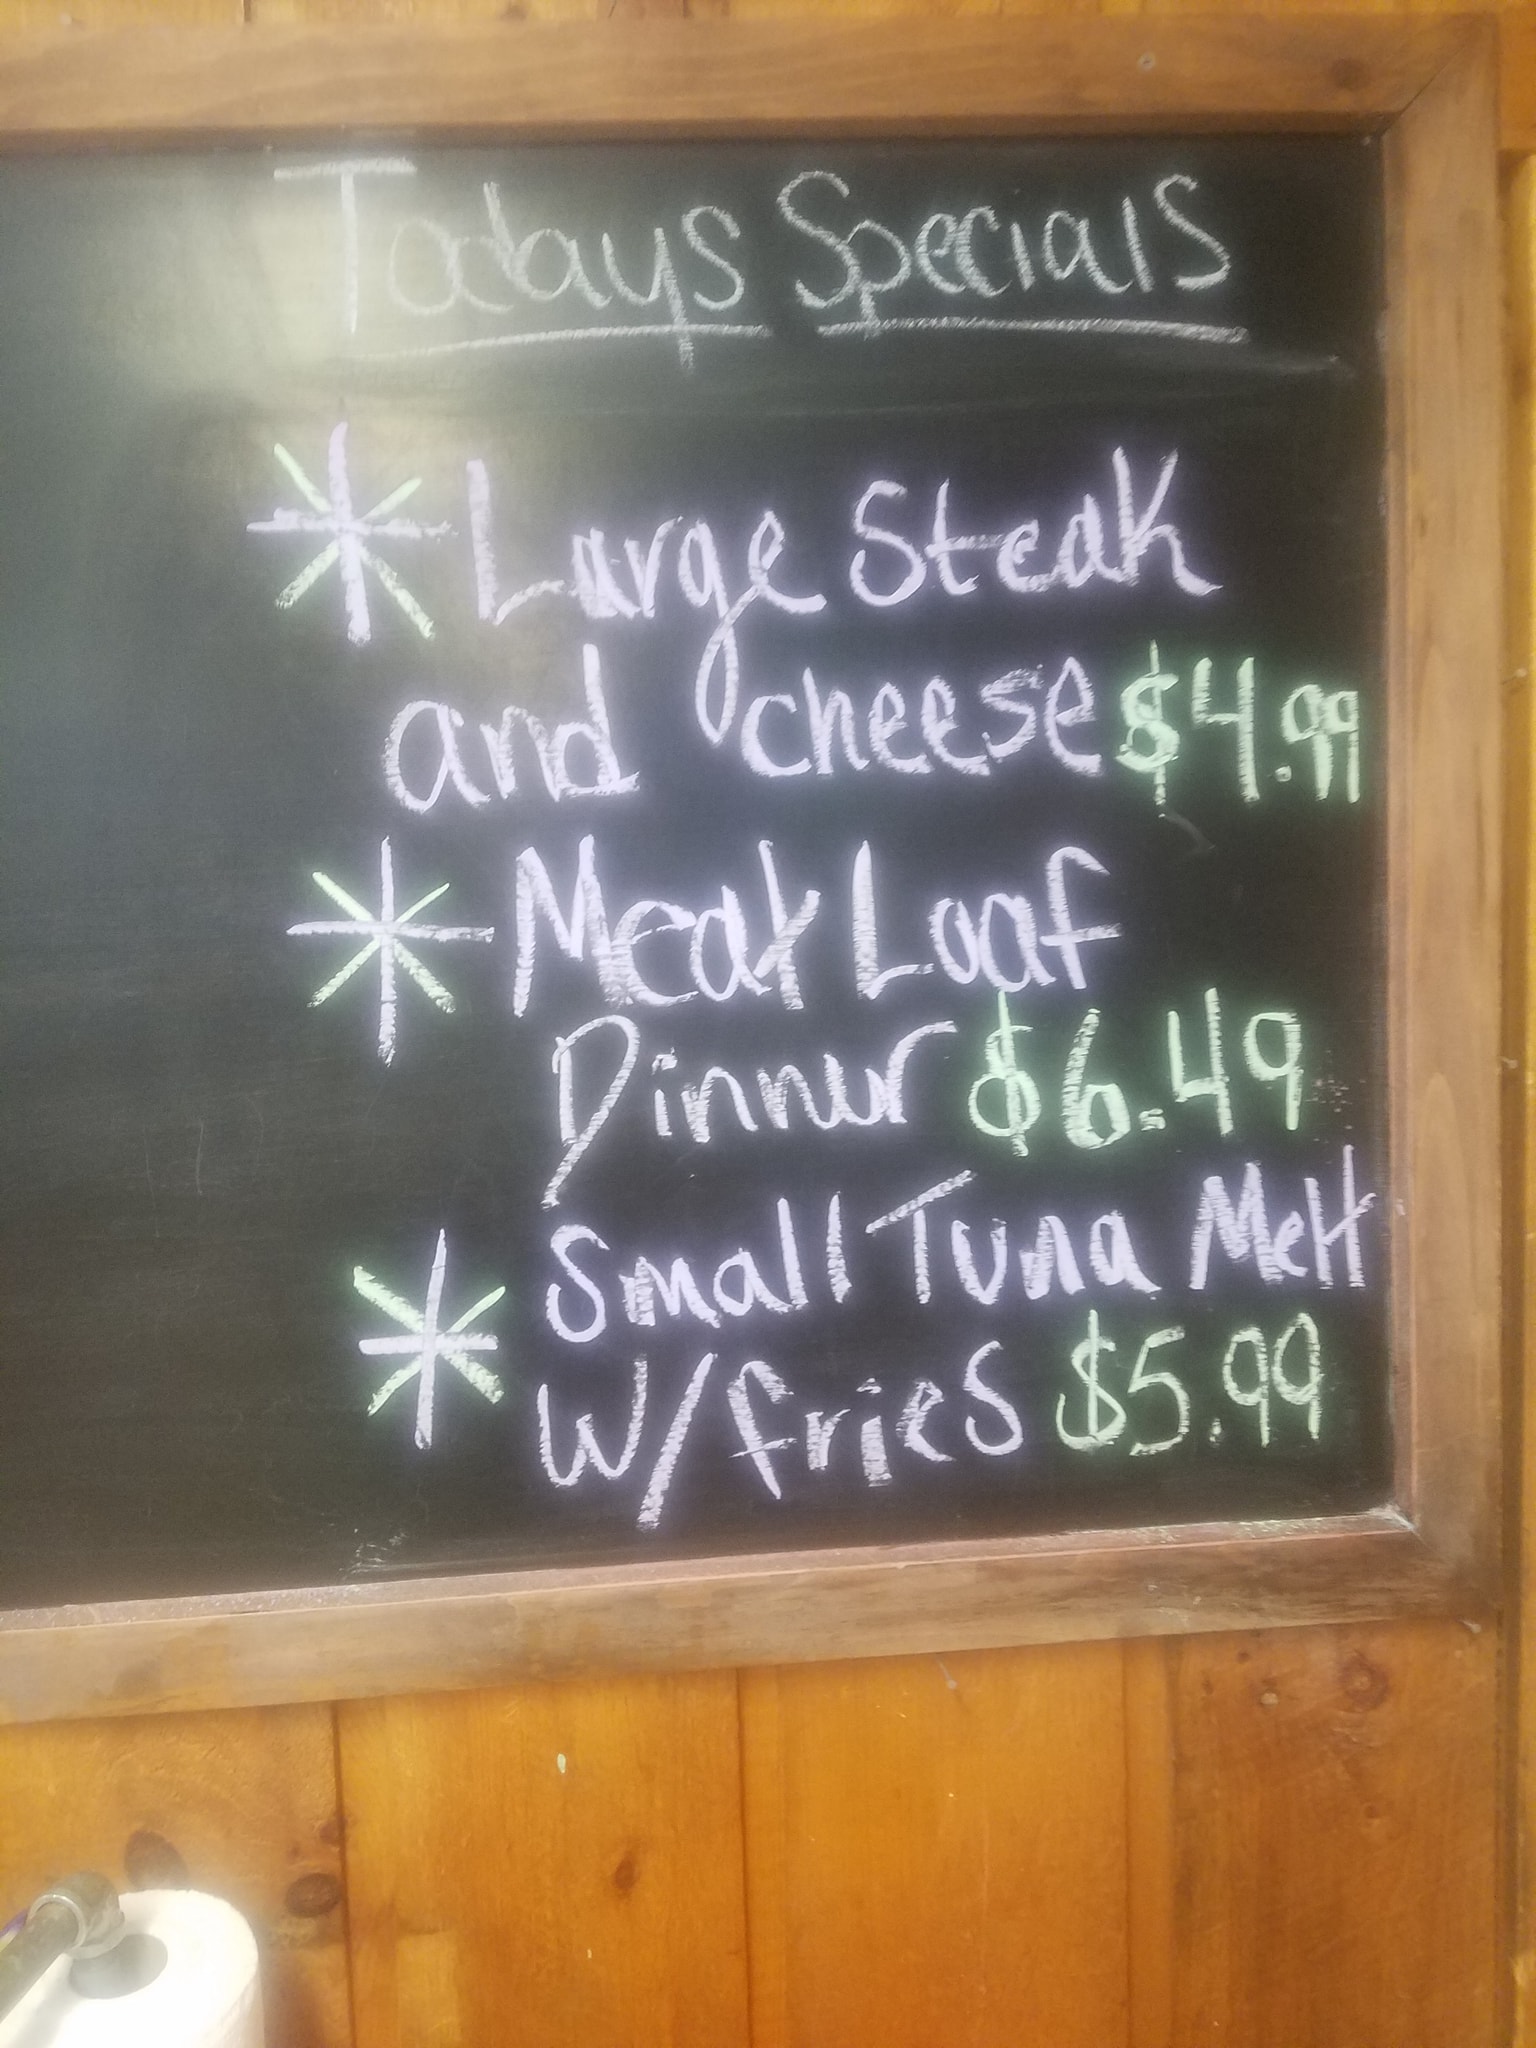 Todays Specials
* Large Steak
and cheese $4.99
* Meat Loaf
Dinner $6.49
* Small Tuna Melt
W/fries $5.99